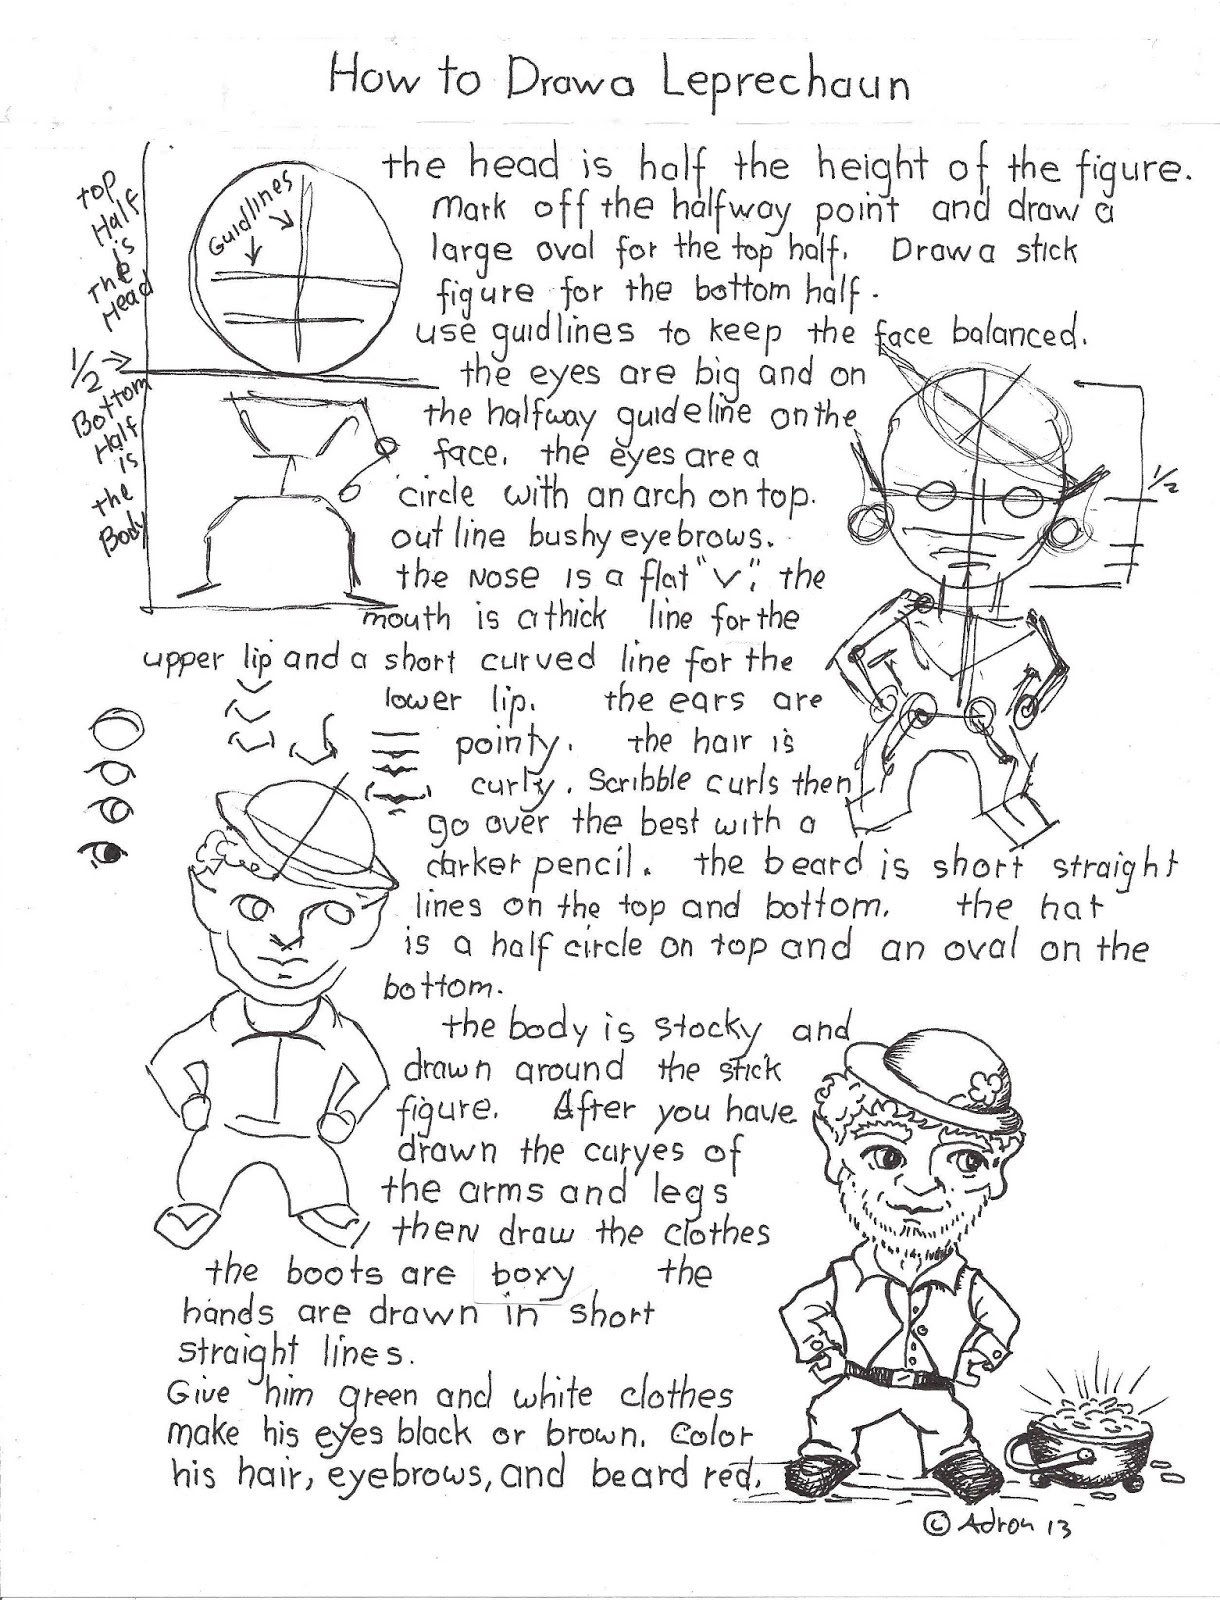 How to Draw a Leprechaun
top
Half
is
The
Head
1/2
Bottom
Half
is
the
Body
Guidlines
the head is half the height of the figure.
Mark off the halfway point and draw a
large oval for the top half. Draw a stick
figure for the bottom half.
use guidlines to keep the face balanced.
the eyes are big and on
the halfway guideline on the
face. the eyes are a
circle with an arch on top.
out line bushy eyebrows.
the Nose is a flat "V", the
mouth is a thick line for the
upper lip and a short curved line for the
lower lip. the ears are
pointy. the hair is
curly. Scribble curls then
go over the best with a
darker pencil. the beard is short straight
lines on the top and bottom. the hat
is a half circle on top and an oval on the
bottom.
1/2
the body is stocky and
drawn around the stick
figure. After you have
drawn the curves of
the arms and legs
then draw the clothes
the boots are boxy the
hands are drawn in short
straight lines.
Give him green and white clothes
make his eyes black or brown. Color
his hair, eyebrows, and beard red.
© Adron 13